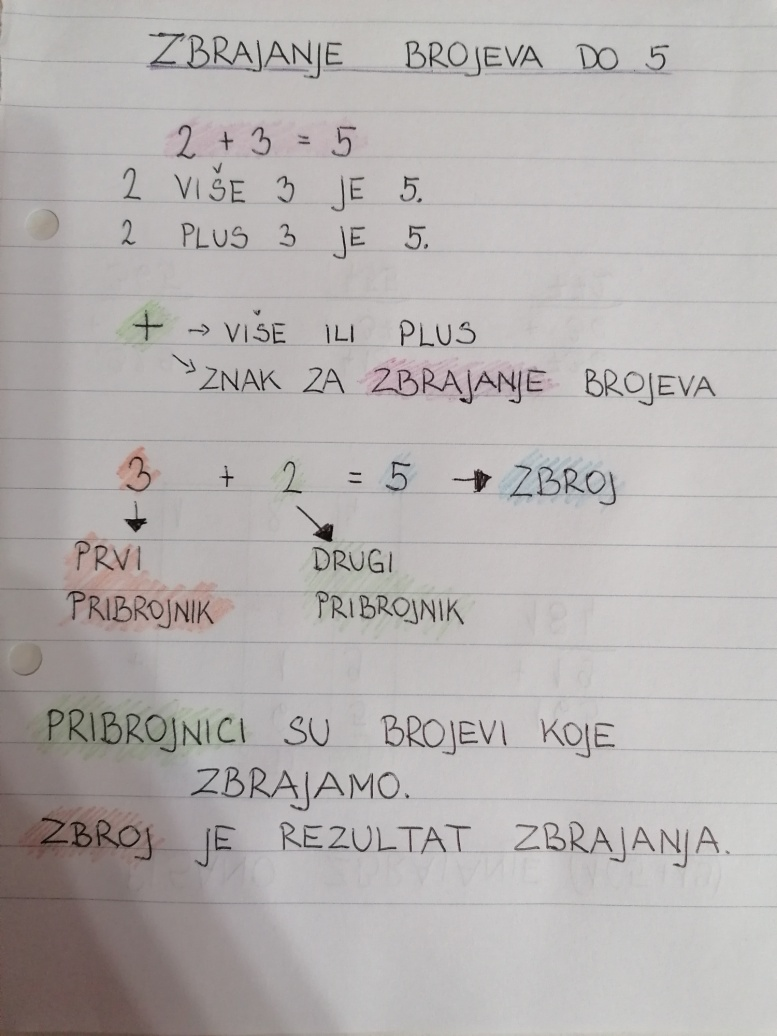 ZBRAJANJE BROJEVA DO 5
2 + 3 = 5
2 VIŠE 3 JE 5.
2 PLUS 3 JE 5.
+ → VIŠE ILI PLUS
↘ ZNAK ZA ZBRAJANJE BROJEVA
3 + 2 = 5 → ZBROJ
PRVI DRUGI
PRIBROJNIK PRIBROJNIK
PRIBROJNICI SU BROJEVI KOJE
ZBRAJAMO.
ZBROJ JE REZULTAT ZBRAJANJA.